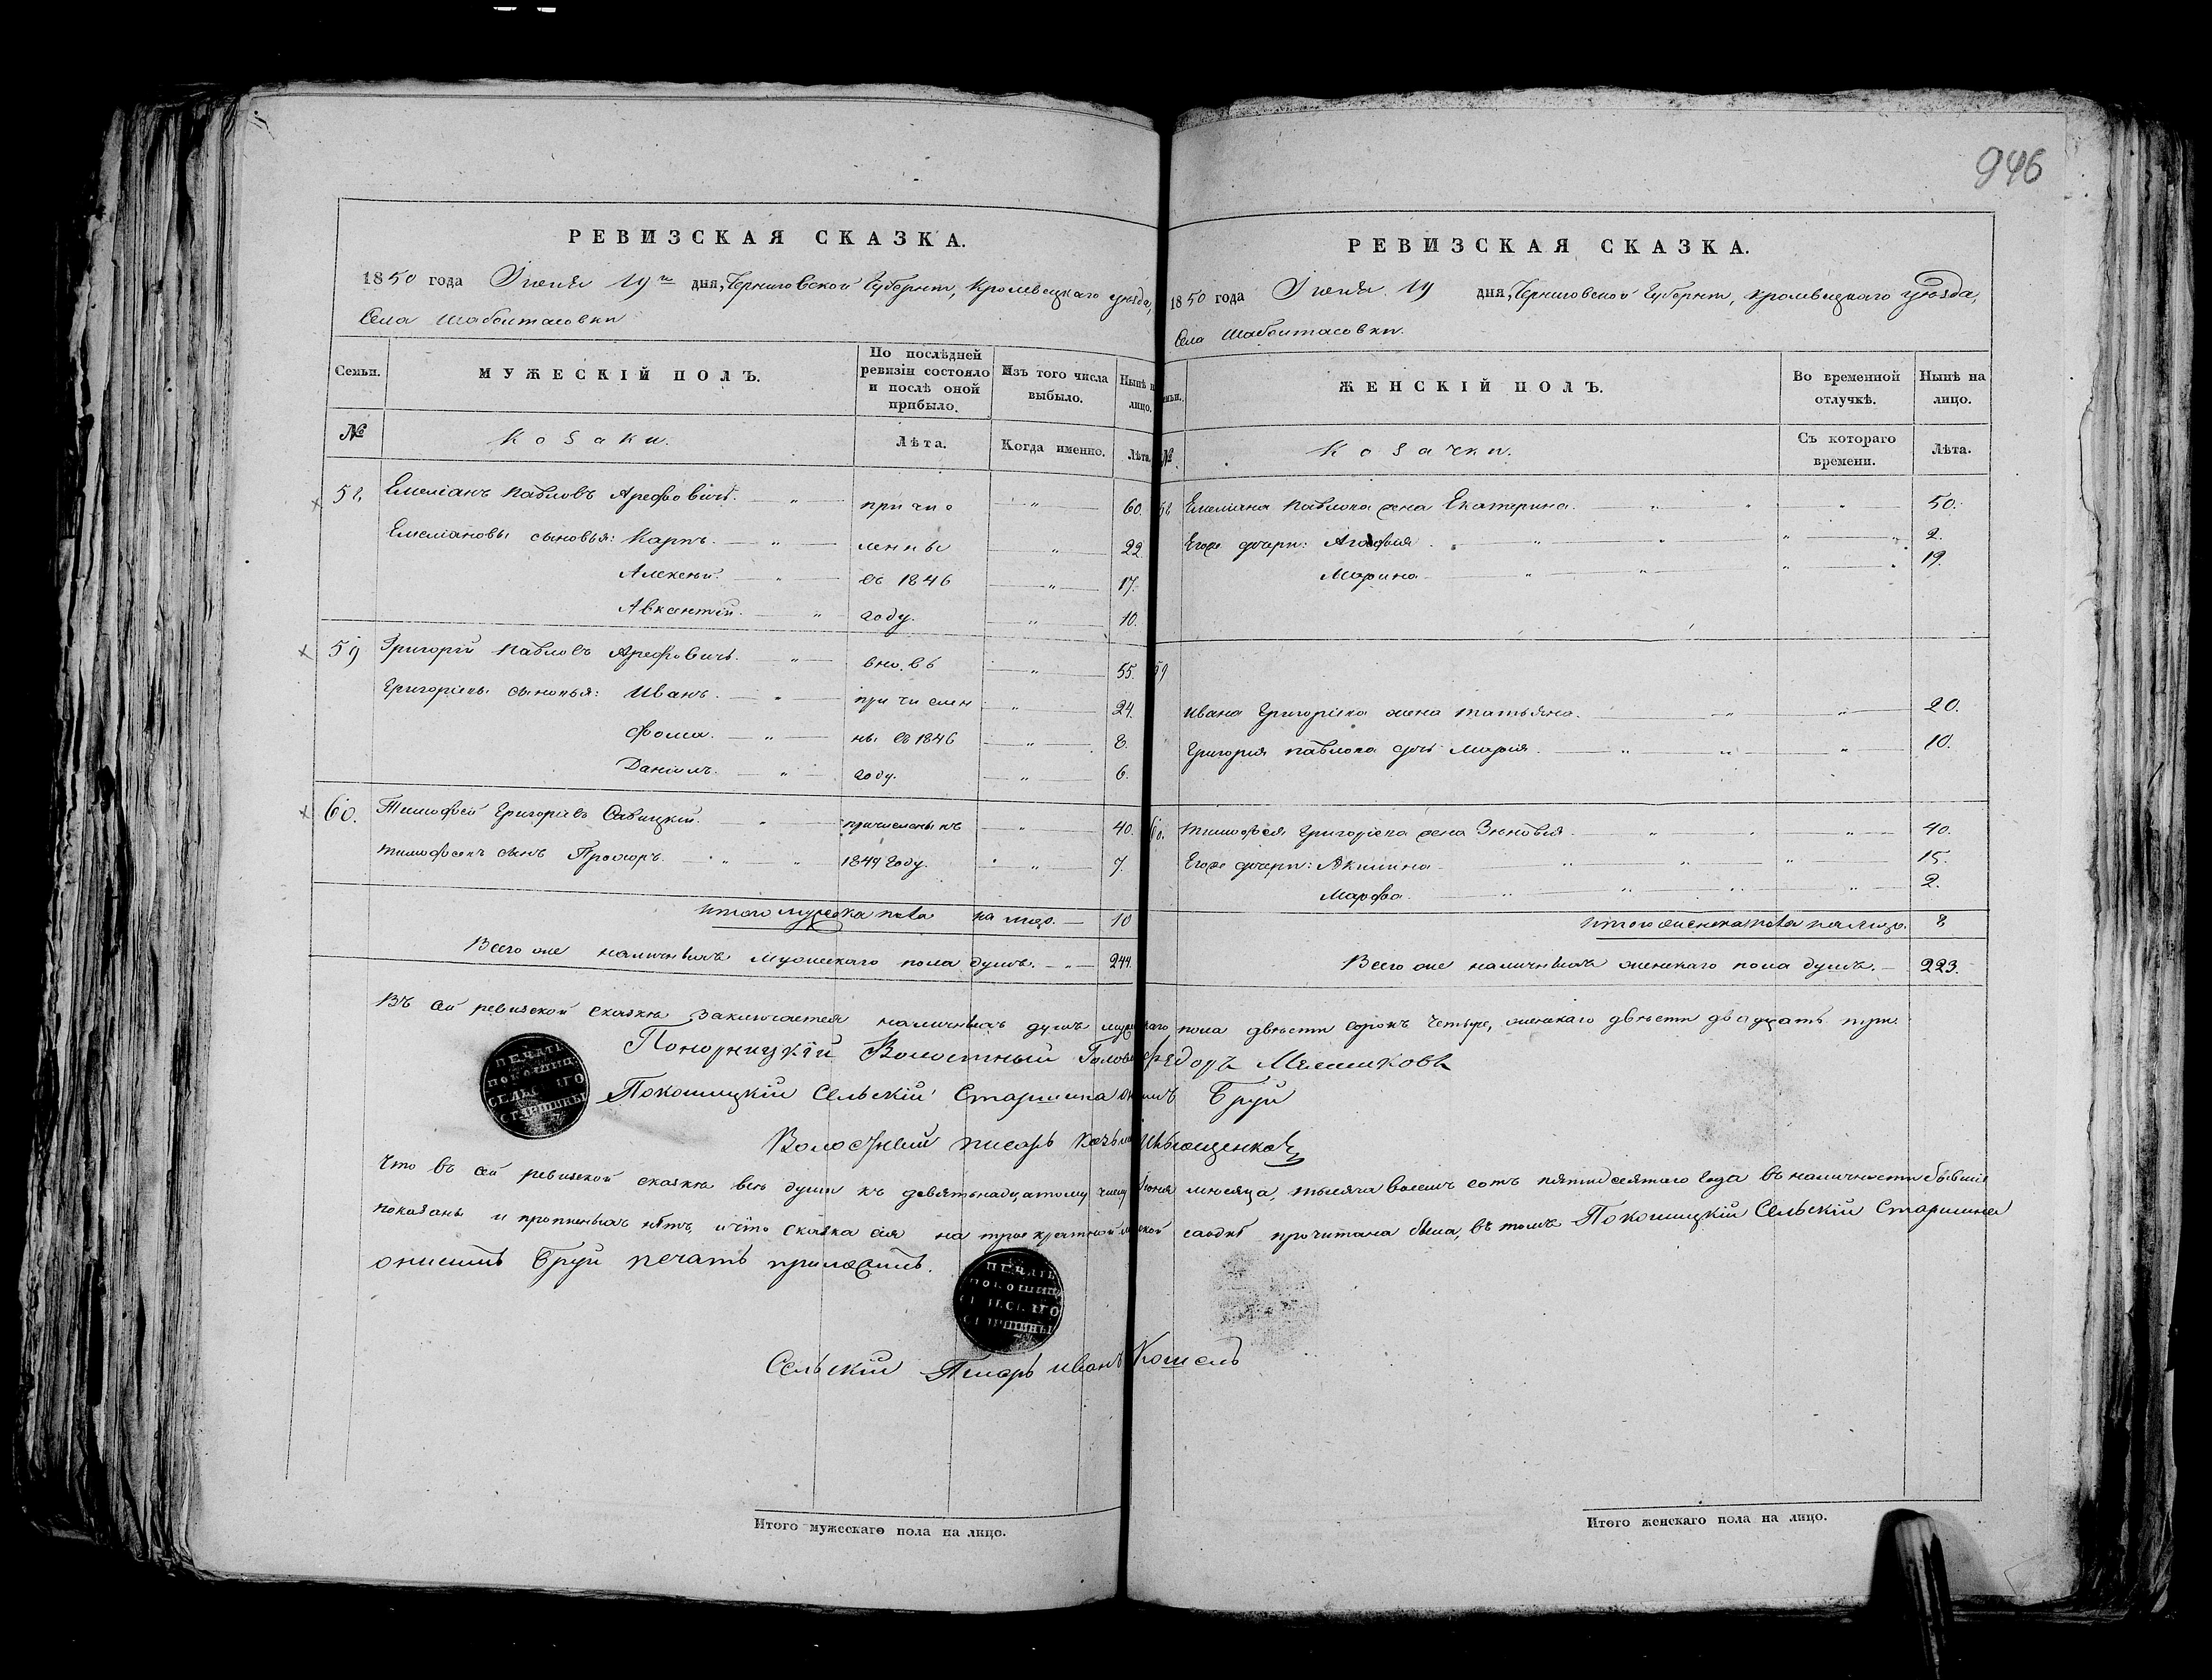 946
РЕВИЗСКАЯ СКАЗКА.
1850 года Іюня 19го дня, Черниговской Губерніи, Кролевецкаго уѣзда,
Села Шабалтасовки
Семьи.
МУЖЕСКІЙ ПОЛЪ.
По послѣдней ревизіи состояло и послѣ оной прибыло.
Изъ того числа выбыло.
Нынѣ н лицо.
№
Козаки.
Лѣта.
Когда именно.
Лѣта.
58. Емеліанъ Павловъ Арефовичъ. — „ — причис — „ — 60.
Емеліановы сыновья: Карпъ. — „ — ленны — „ — 22.
Алексѣй. — „ — въ 1846 — „ — 17.
Авксентій. — „ году. — „ — 10.
59 Григорій Павловъ Арефовичъ. — „ — вновь — „ — 55.
Григоріевы сыновья: Иванъ. — „ — причислен — „ — 24.
Фома. — „ — ны въ 1846 — „ — 8.
Даніилъ. — „ — году. — „ — 6.
60. Тимофей Григоріевъ Савицкій. „ — причислены въ — „ — 40.
Тимофеевъ сынъ Прохоръ. — „ — „ 1849 году. „ — 7.
Итого мужеска пола на лицо. — 10
Всего же наличныхъ мужескаго пола душъ. — „ — 244.
РЕВИЗСКАЯ СКАЗКА.
1850 года Іюня 19 дня, Черниговской Губерніи, Кролевецкаго уѣзда,
Села Шабалтасовки.
емьи.
ЖЕНСКІЙ ПОЛЪ.
Во временной отлучкѣ.
Нынѣ на лицо.
№
Козачки.
Съ котораго времени.
Лѣта.
58 Емеліана Павлова жена Екатерина. „ „ „ 50.
Егоже дочери: Агафія. „ „ „ „ 2.
Марина — „ „ „ 19.
59
Ивана Григоріева жена Татьяна. — „ — „ — 20.
Григорія Павлова дочь Марія — „ „ „ — 10.
60. Тимофея Григоріева жена Зиновія. „ „ „ — 40.
Егоже дочери: Акилина — „ „ „ — 15.
Марфа. „ „ „ „ — 2.
Итого женска пола на лицо. 8
Всего же наличныхъ женскаго пола душъ. — 223.
Въ сей ревизской сказкѣ заключается наличныхъ душъ мужескаго пола двѣсти сорокъ четыре, женскаго двѣсти двадцать три.
Понорницкій Волостный Голова Федоръ Мяшиковъ
Покошицкій Сельскій Старшина Онисимъ Бруй
Волостный писарь Козьма
Что въ сей ревизской сказкѣ всѣ души къ девятьнадцатому числу Іюня мѣсяца, тысяча восемь сотъ пятидесятого года въ наличности бывшіе
показаны и прописныхъ нѣтъ, и что сказка сія на троекратной мірской сходкѣ прочитана была, въ томъ Покошицкій Сельскій Старшина
Онисимъ Бруй печать приложилъ.
Сельскій Писарь Иванъ Кошель
ПЕЧАТЬ
ПОКОШИЦ:
СЕЛЬСКАГО
СТАРШИНЫ
ПЕЧАТЬ
ПОКОШИЦ:
СЕЛЬСКАГО
СТАРШИНЫ
Итого мужескаго пола на лицо.
Итого женскаго пола на лицо.